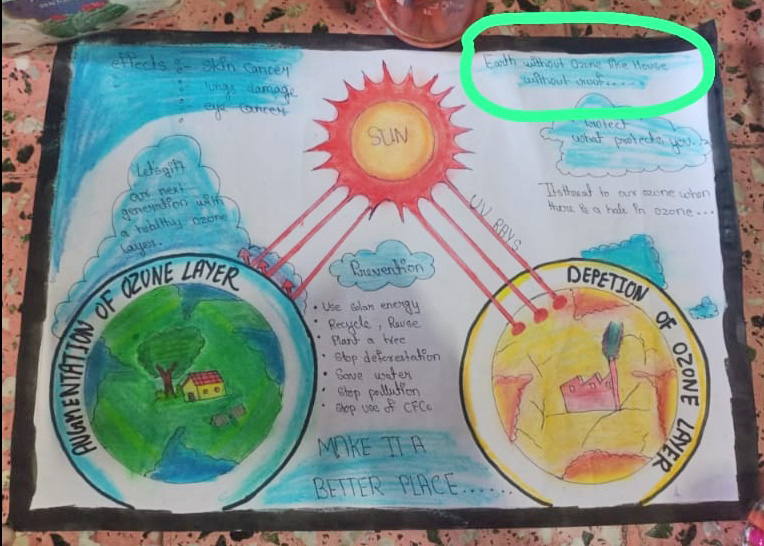 effects :- Skin Cancer
lungs damage
eye cancer
Earth without Ozone like House
without roof.....
SUN
Protect
what protects you.
Let's gift
our next
generation with
a healthy ozone
layer.
It's threat to our ozone when
there is a hole in ozone...
UV RAYS
Prevention
AUGMENTATION OF OZONE LAYER
DEPETION OF OZONE LAYER
• Use Solar energy
• Recycle, Reuse
• Plant a tree
• Stop deforestation
• Save water
• Stop pollution
Stop use of CFCs
MAKE IT A
BETTER PLACE......